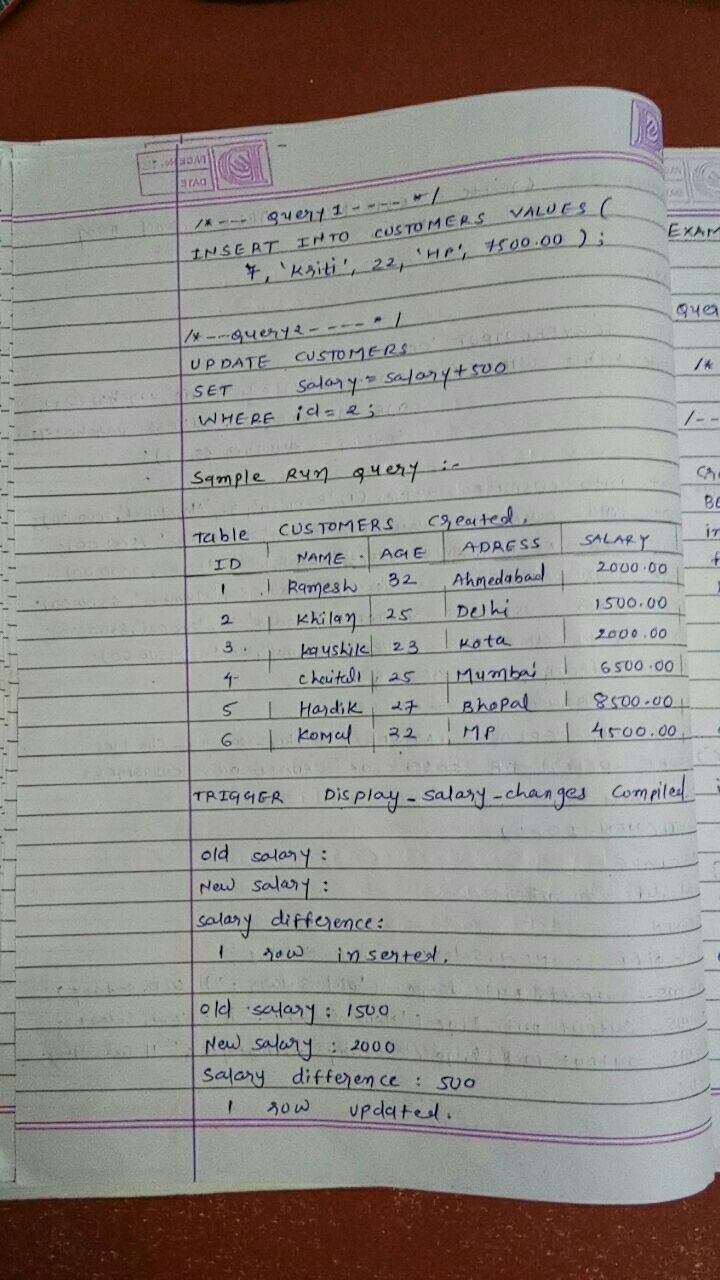 PAGE No.
DATE
/*--- Query 1 ----*/
INSERT INTO CUSTOMERS VALUES (
7, 'Kriti', 22, 'HP', 7500.00 );
/*--Query2-----*/
UPDATE CUSTOMERS
SET salary = salary+500
WHERE id = 2;
Sample Run Query :-
Table CUSTOMERS Created.
ID NAME AGE ADRESS SALARY
1 Ramesh 32 Ahmedabad 2000.00
2 Khilan 25 Delhi 1500.00
3 Kaushik 23 Kota 2000.00
4 Chaitali 25 Mumbai 6500.00
5 Hardik 27 Bhopal 8500.00
6 Komal 32 MP 4500.00
TRIGGER Display_salary_changes Compiled.
Old salary :
New salary :
Salary difference:
1 row inserted.
Old salary : 1500
New salary : 2000
Salary difference : 500
1 row updated.
EXAM
Quer
/*
/--
Cre
BE
in